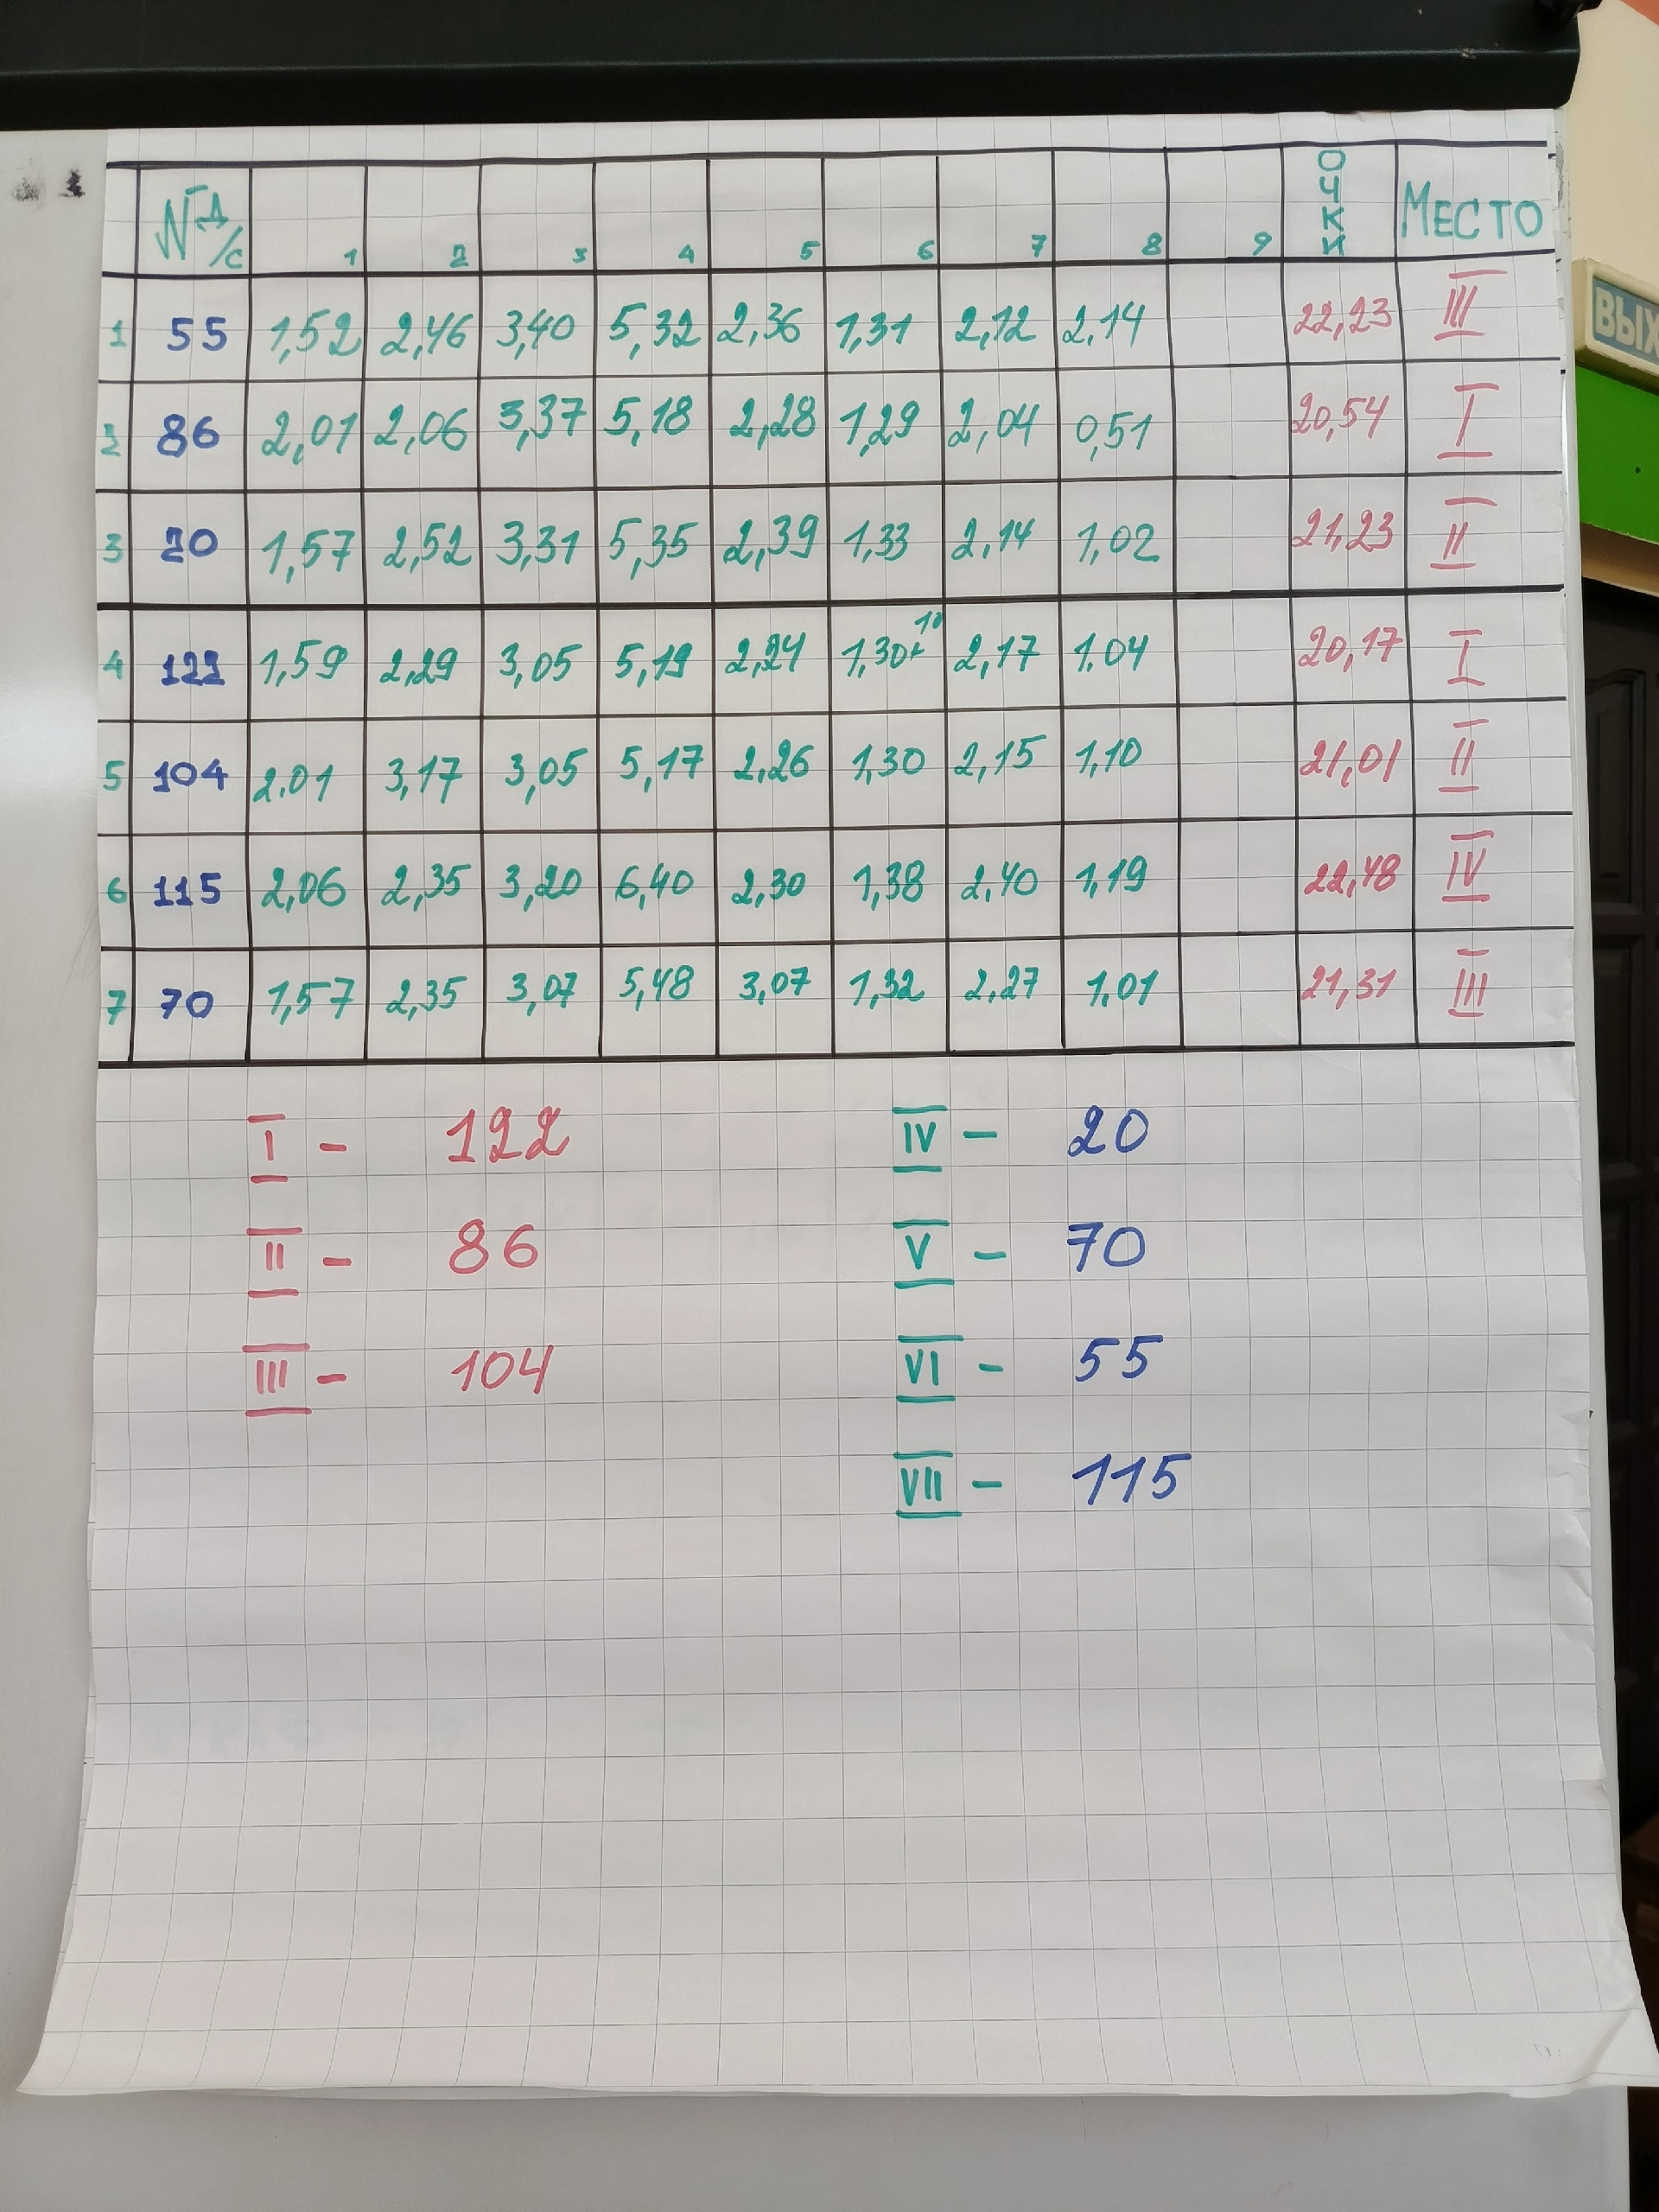 № Д/с 1 2 3 4 5 6 7 8 9 ОЧКИ МЕСТО
1 55 1,52 2,46 3,40 5,32 2,36 1,31 2,12 2,14 22,23 III
2 86 2,01 2,06 3,37 5,18 2,28 1,29 2,04 0,51 20,54 I
3 20 1,57 2,52 3,31 5,35 2,39 1,33 2,14 1,02 21,23 II
4 122 1,59 2,29 3,05 5,19 2,24 1,30+10 2,17 1.04 20,17 I
5 104 2.01 3,17 3,05 5,17 2,26 1,30 2,15 1,10 21,01 II
6 115 2,06 2,35 3,20 6,40 2,30 1,38 2,40 1,19 22,48 IV
7 70 1,57 2,35 3,07 5,48 3,07 1,32 2,27 1.01 21,31 III
I - 122 IV - 20
II - 86 V - 70
III - 104 VI - 55
VII - 115